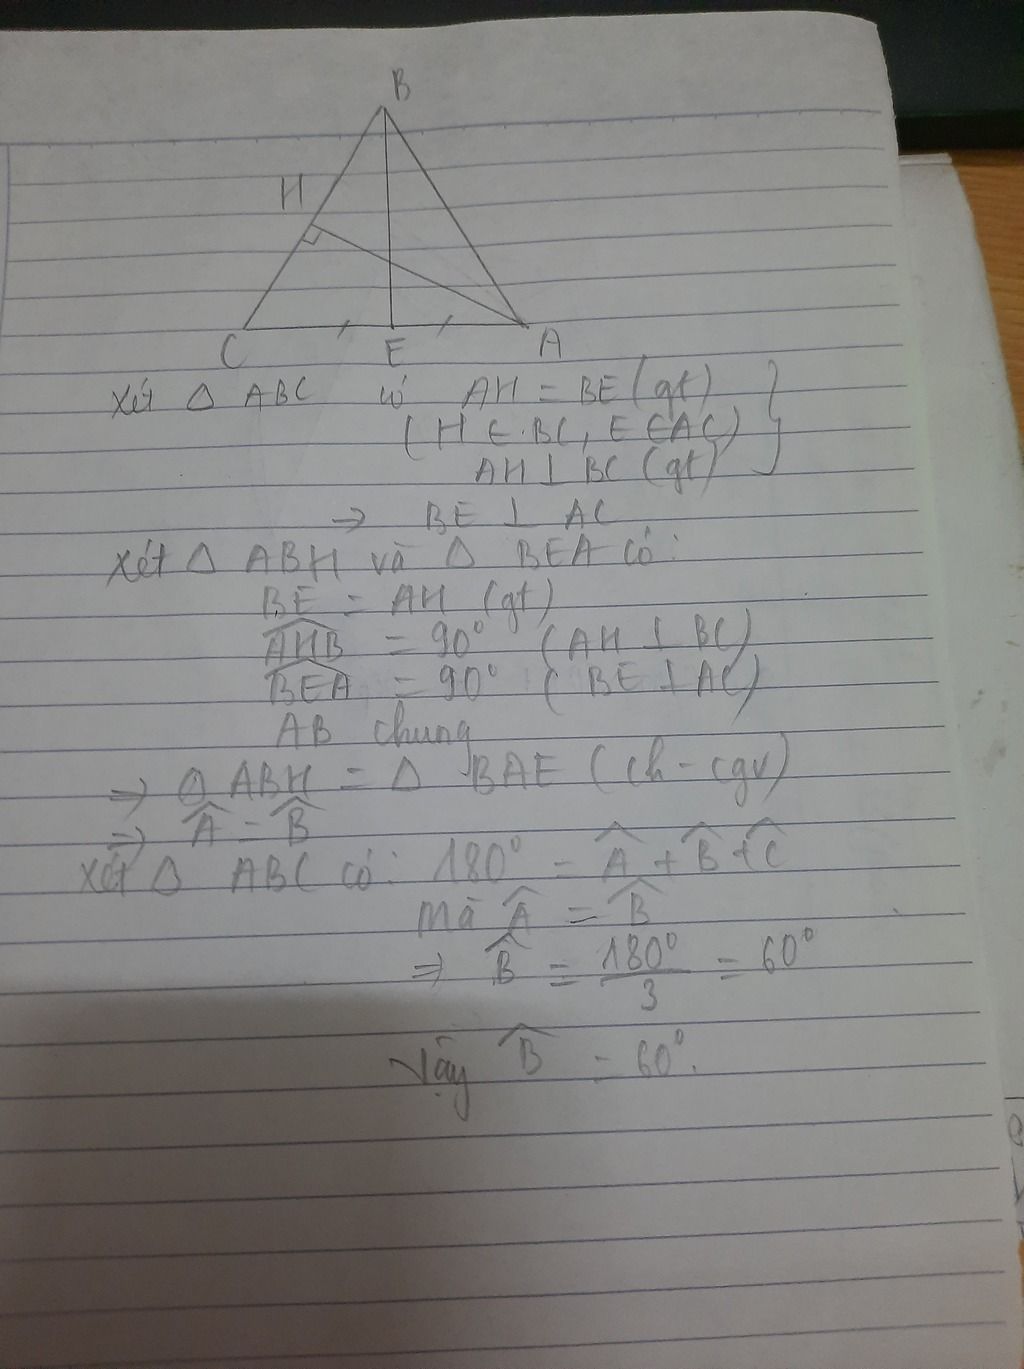 B
H
C E A
Xét Δ ABC có AH = BE (gt)
(H ∈ BC, E ∈ AC)
AH ⊥ BC (gt)
⇒ BE ⊥ AC
Xét Δ ABH và Δ BEA có:
BE = AH (gt)
\widehat{AHB} = 90° (AH ⊥ BC)
\widehat{BEA} = 90° (BE ⊥ AC)
AB chung
⇒ Δ ABH = Δ BAE (ch - cgv)
⇒ \widehat{A} = \widehat{B}
Xét Δ ABC có: 180° = \widehat{A} + \widehat{B} + \widehat{C}
Mà \widehat{A} = \widehat{B}
⇒ \widehat{B} = \frac{180°}{3} = 60°
Vậy \widehat{B} = 60°.